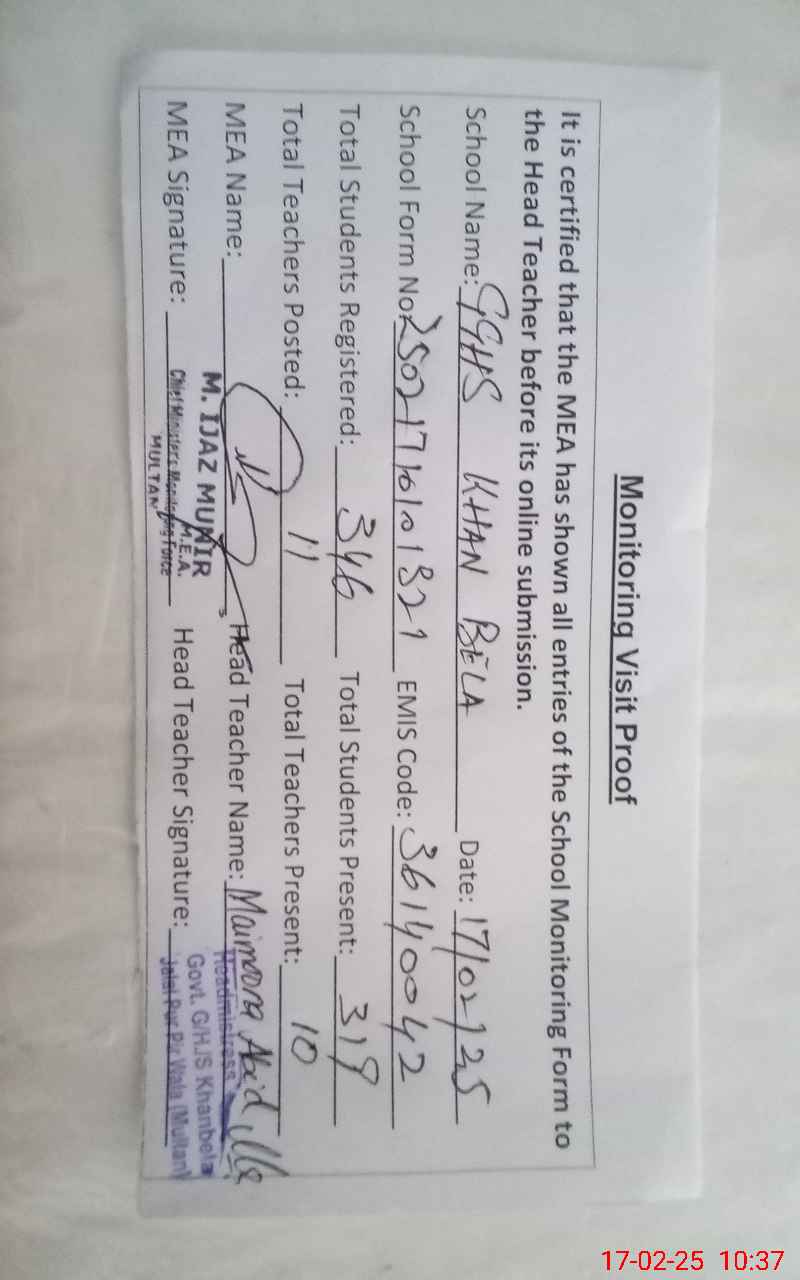 Monitoring Visit Proof
It is certified that the MEA has shown all entries of the School Monitoring Form to
the Head Teacher before its online submission.
School Name: GGHS KHAN BELA Date: 17/02/25
School Form No: EMIS Code: 36140042
Total Students Registered: 346 Total Students Present: 319
Total Teachers Posted: 11 Total Teachers Present: 10
MEA Name: Head Teacher Name: Maimoona Abid
MEA Signature: Head Teacher Signature:
M. IJAZ MUNIR
M.E.A.
Chief Minister's Monitoring Force
MULTAN
Headmistress
Govt. G/H/S Khanbela
Jalal Pur Pir Wala (Multan)
17-02-25 10:37